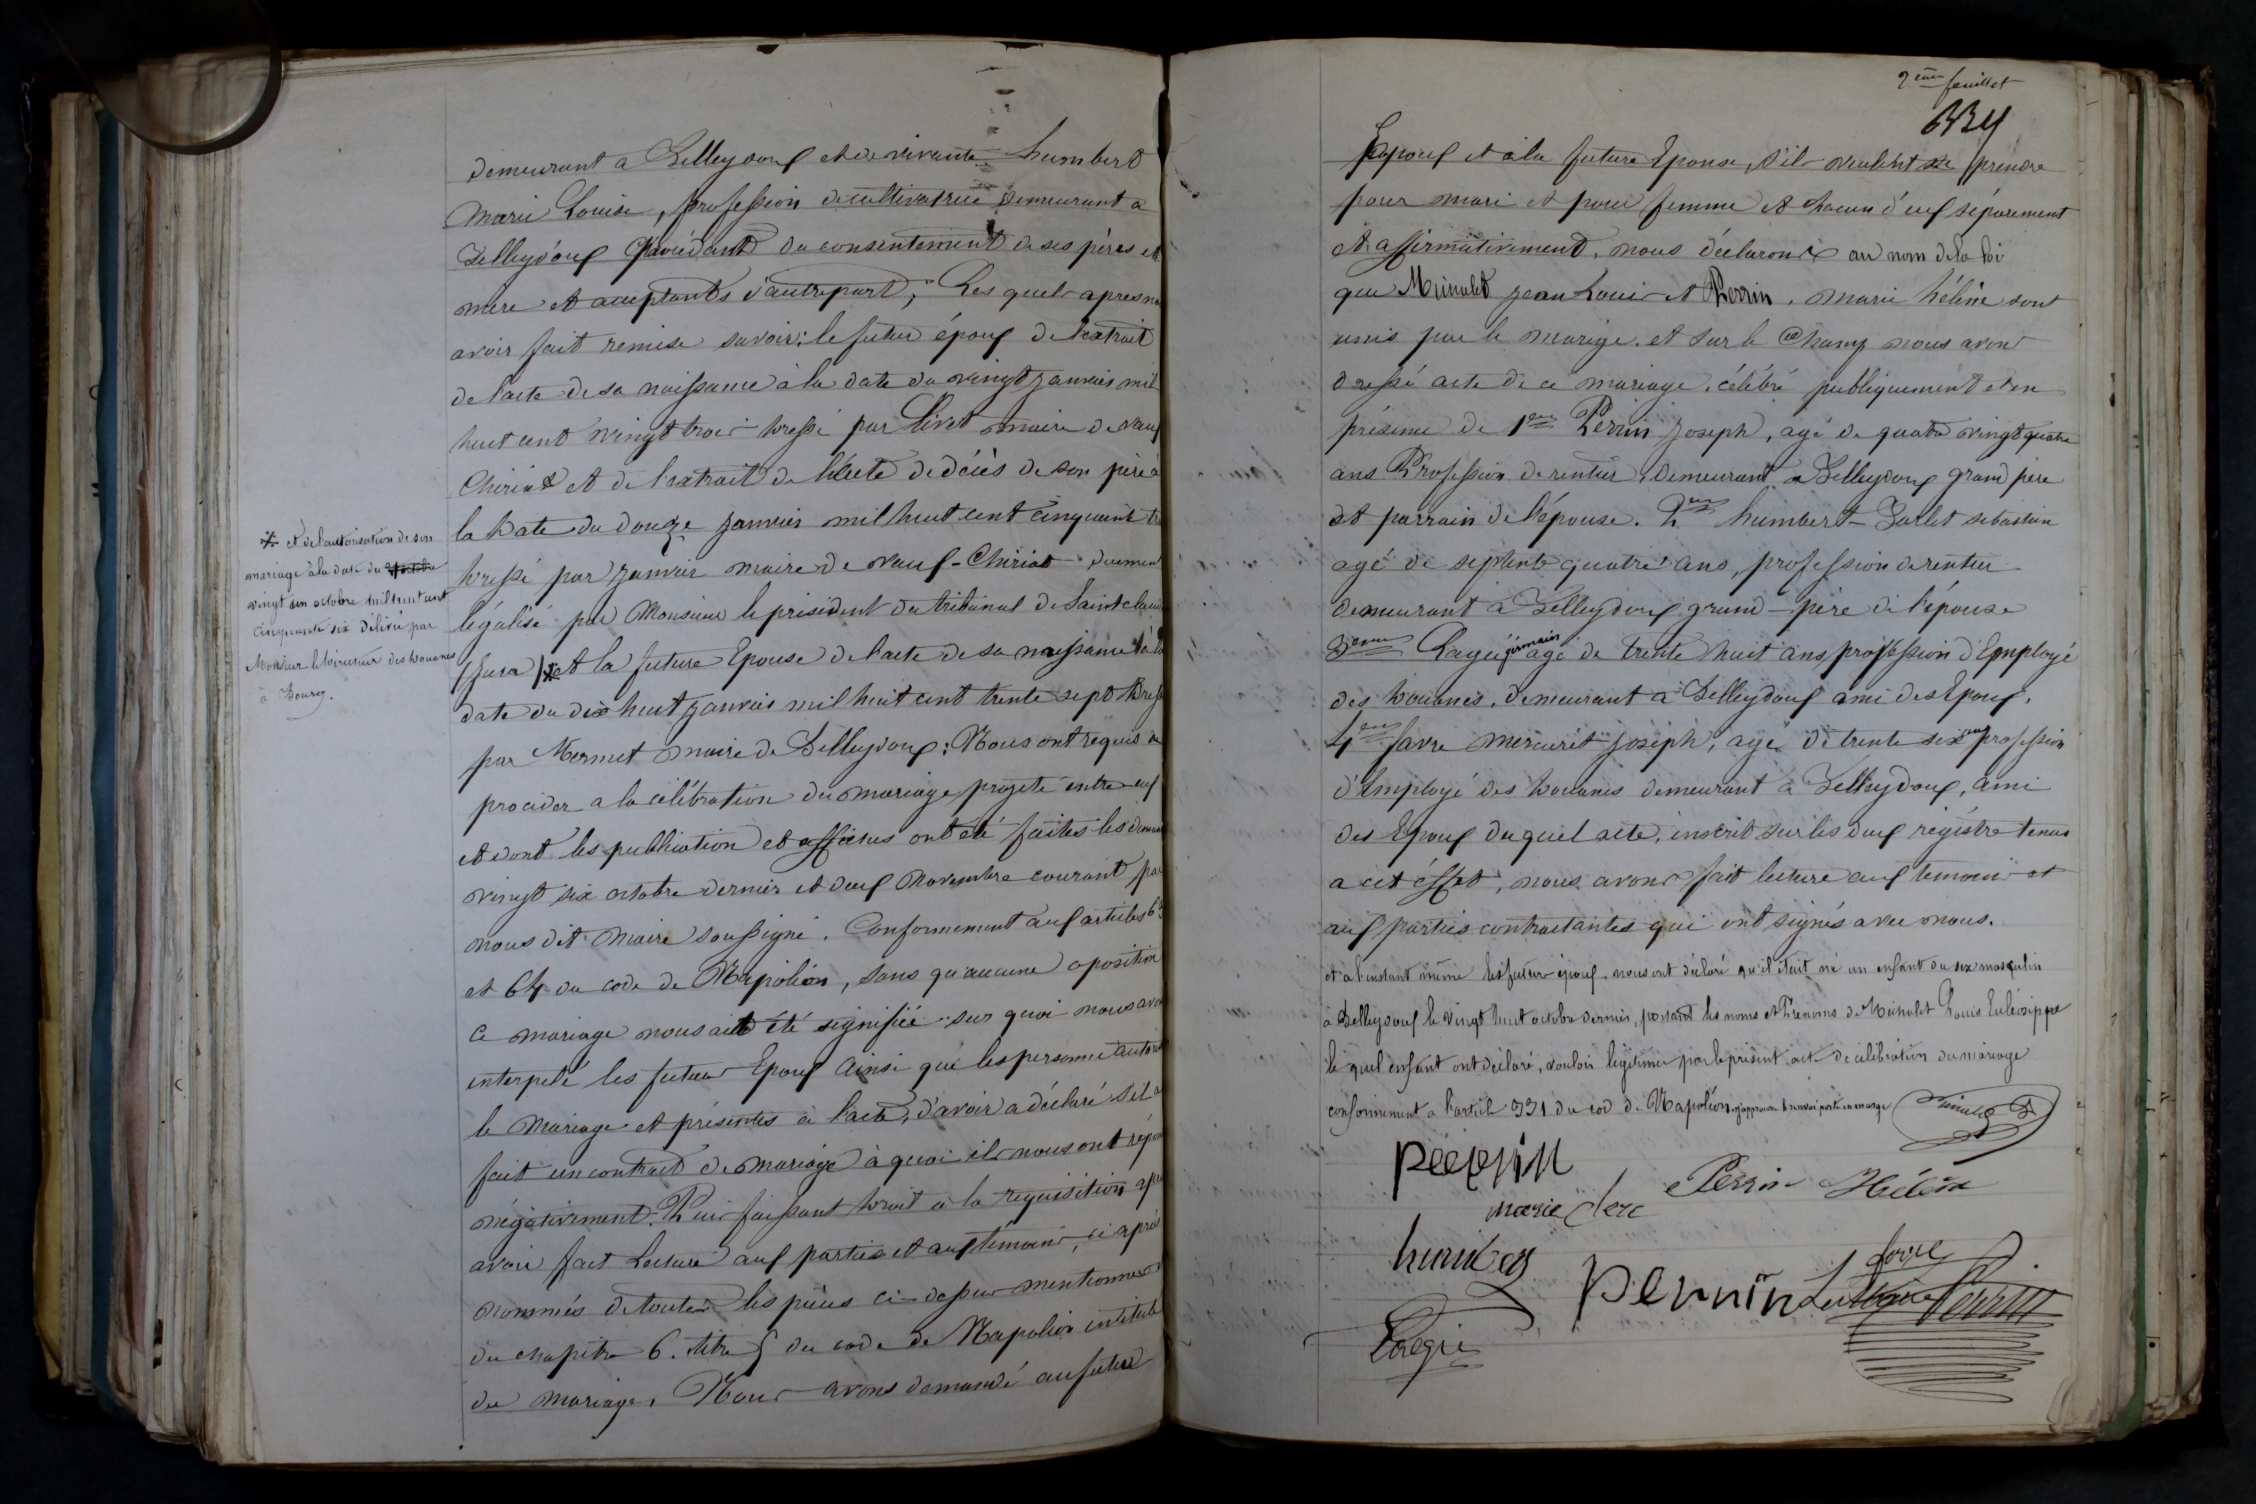 demeurant a Belleydoux et de vivante humbert
Marie Louise, profession de cultivatrice demeurant a
Belleydoux procédant du consentement de ses pères et
mere et acceptants d'autrepart, Les quels apres
avoir fait remise savoir: le futur époux de l'extrait
de l'acte de sa naissance à la date du vingt janvier mil
huit cent vingt trois dressé par maire de vaux
Chiriat et de l'extrait de l'acte de décès de son père à
la date du douze janvier mil huit cent cinquante
dressé par janvier maire de vaux-Chiriat duement
légalisé par Monsieur le président du tribunal de Saint claude
(Jura) * et la future Epouse de l'acte de sa naissance à la
date du dix huit janvier mil huit cent trente sept dressé
par Mermet maire de Belleydoux; Nous ont requis de
proceder a la célébration du mariage projeté entre eux
et dont les publication et affiches ont été faites les
vingt six octobre dernier et deux Novembre courant par
nous dit Maire soussigné. Conformement aux articles 63
et 64 du code de Napoléon, sans qu'aucune oposition
ce mariage nous ait été signifiée sur quoi nous avons
interpelé les futurs Epoux Ainsi que les personne
le Mariage et présentes à l'acte, d'avoir a déclaré s'il a
fait un contrat de mariage à quoi ils nous ont
négativement. Puis faisant droit à la requisition
avoir fait lecture aux parties et aux témoins, ci après
nommés de toutes les pièces ci-dessus mentionnées
du chapitre 6. titre 5 du code de Napoléon intitulé
du mariage. Nous avons demandé au futur
* et de l'autorisation de son
mariage à la date du
vingt un octobre mil huit cent
cinquante six délivré par
Monsieur le directeur des douanes
à Bourg.
2ème feuillet
334
Epoux et à la future Epouse, s'il veulent se prendre
pour mari et pour femme et chacun d'eux séparement
et affirmativement, nous déclarons au nom de la loi
que Michalet jean Louis et Perrin, marie hélène sont
unis par le mariage. et sur le Champ nous avons
dressé acte de ce mariage, célébré publiquement et en
présence de 1er Perrin joseph, agé de quatre vingt quatre
ans Profession de rentier, demeurant a Belleydoux grand père
et parrain de l'épouse. 2em humbert-Barlet sebastien
agé de septente quatre ans, profession de rentier
demeurant à Belleydoux grand-père de l'épouse
3eme Lagie germain agé de trente huit ans profession d'Employé
des douanes, demeurant a Belleydoux ami des Epoux,
4em favre mercuret joseph, agé de trente six ans profession
d'Employé des douanes demeurant à Belleydoux, ami
des Epoux duquel acte, inscrit sur les deux régistre tenus
a cet éffet, nous avons fait lecture aux temoins et
aux parties contractantes qui ont signés avec nous.
et à l'instant même les futurs époux nous ont déclaré qu'il était né un enfant du sex masculin
à Belleydoux le vingt huit octobre dernier, portant les noms et Prenoms de Michalet Louis Euléosippe
le quel enfant ont déclaré, vouloir légitimer par le présent act de célébration du mariage
conformement a l'article 331 du cod de Napoléon, j'approuve le renvoi porté en marge
Perrin
marie clerc
Perrin Hélène
humbert
Perrin
favre
Perrin
Lagie